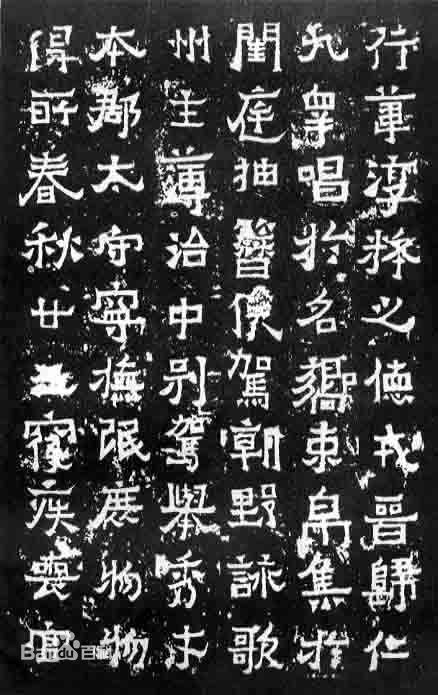 行葦淳粹之德戎晉歸仁
九皋唱於名響束帛集於
閨庭抽簪俟駕朝野詠歌
州主簿治中別駕舉秀才
本郡太守寧撫氓庶物物
得所春秋廿五寢疾喪官
Baidu百科